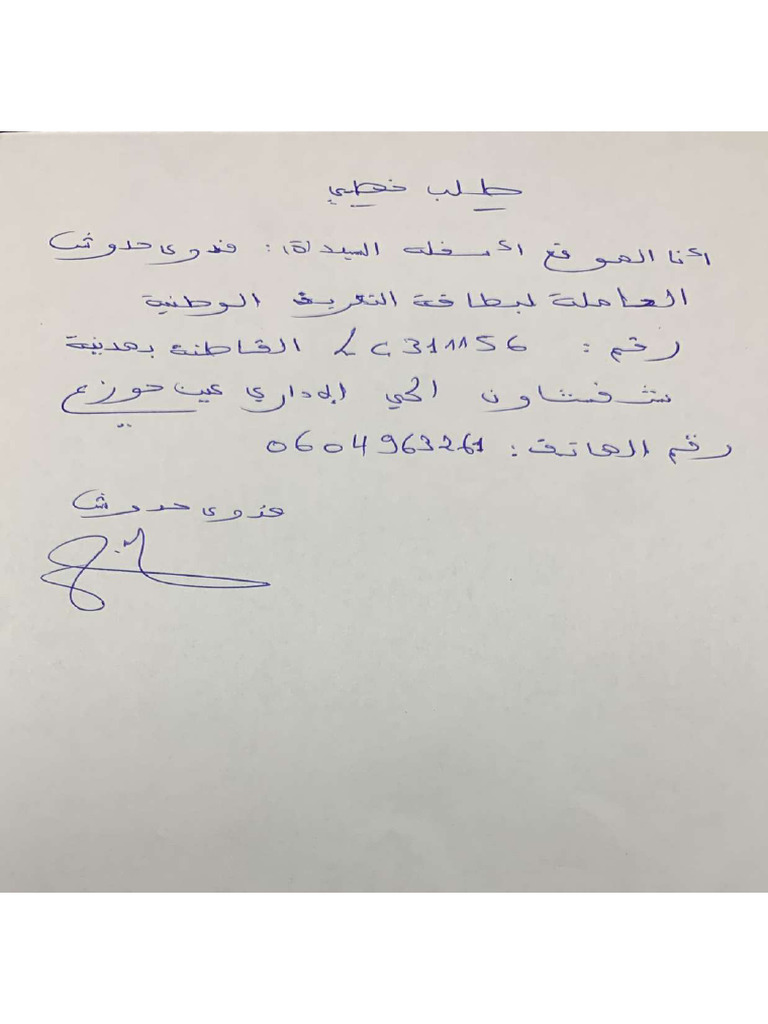 طلب خطي
أنا الموقع أسفله السيد(ة): فدوى حدوش
الحاملة لبطاقة التعريف الوطنية
رقم: LC311156 القاطنة بمدينة
شفشاون الحي الإداري عين حوزي
رقم الهاتف: 0604963261
فدوى حدوش